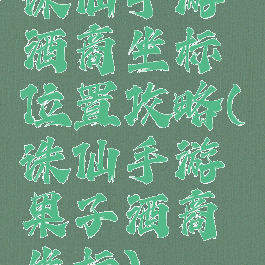 诛仙手游
酒商坐标
位置攻略(
诛仙手游
果子酒商
坐标)